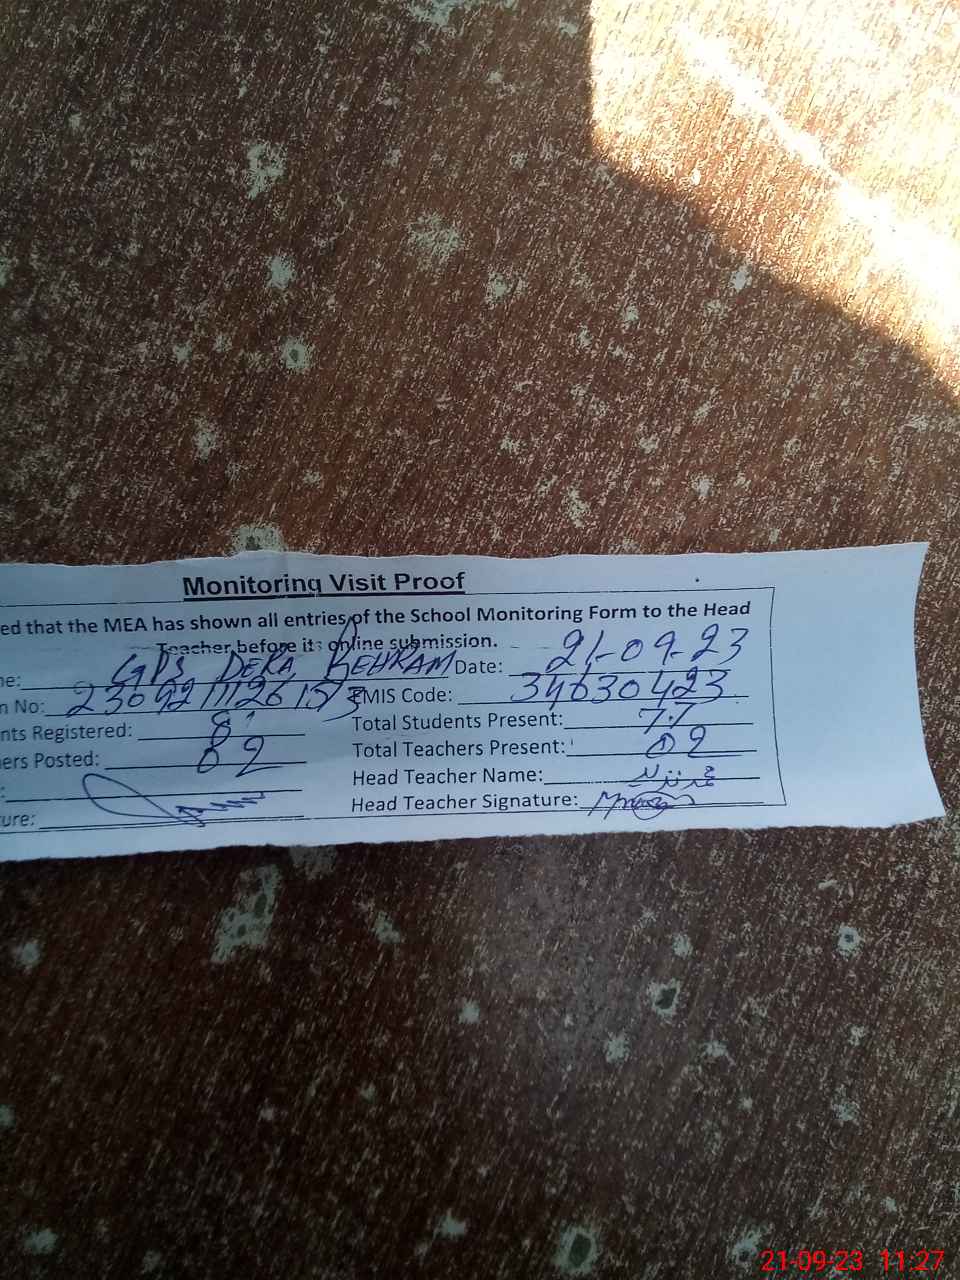 Monitoring Visit Proof
ed that the MEA has shown all entries of the School Monitoring Form to the Head
Teacher before its online submission.
ne: GPS DERA BEHRAM Date: 21-09-23
n No: EMIS Code: 34630423
nts Registered: 81 Total Students Present: 77
ers Posted: 02 Total Teachers Present: 02
: Head Teacher Name:
ure: Head Teacher Signature:
21-09-23 11:27